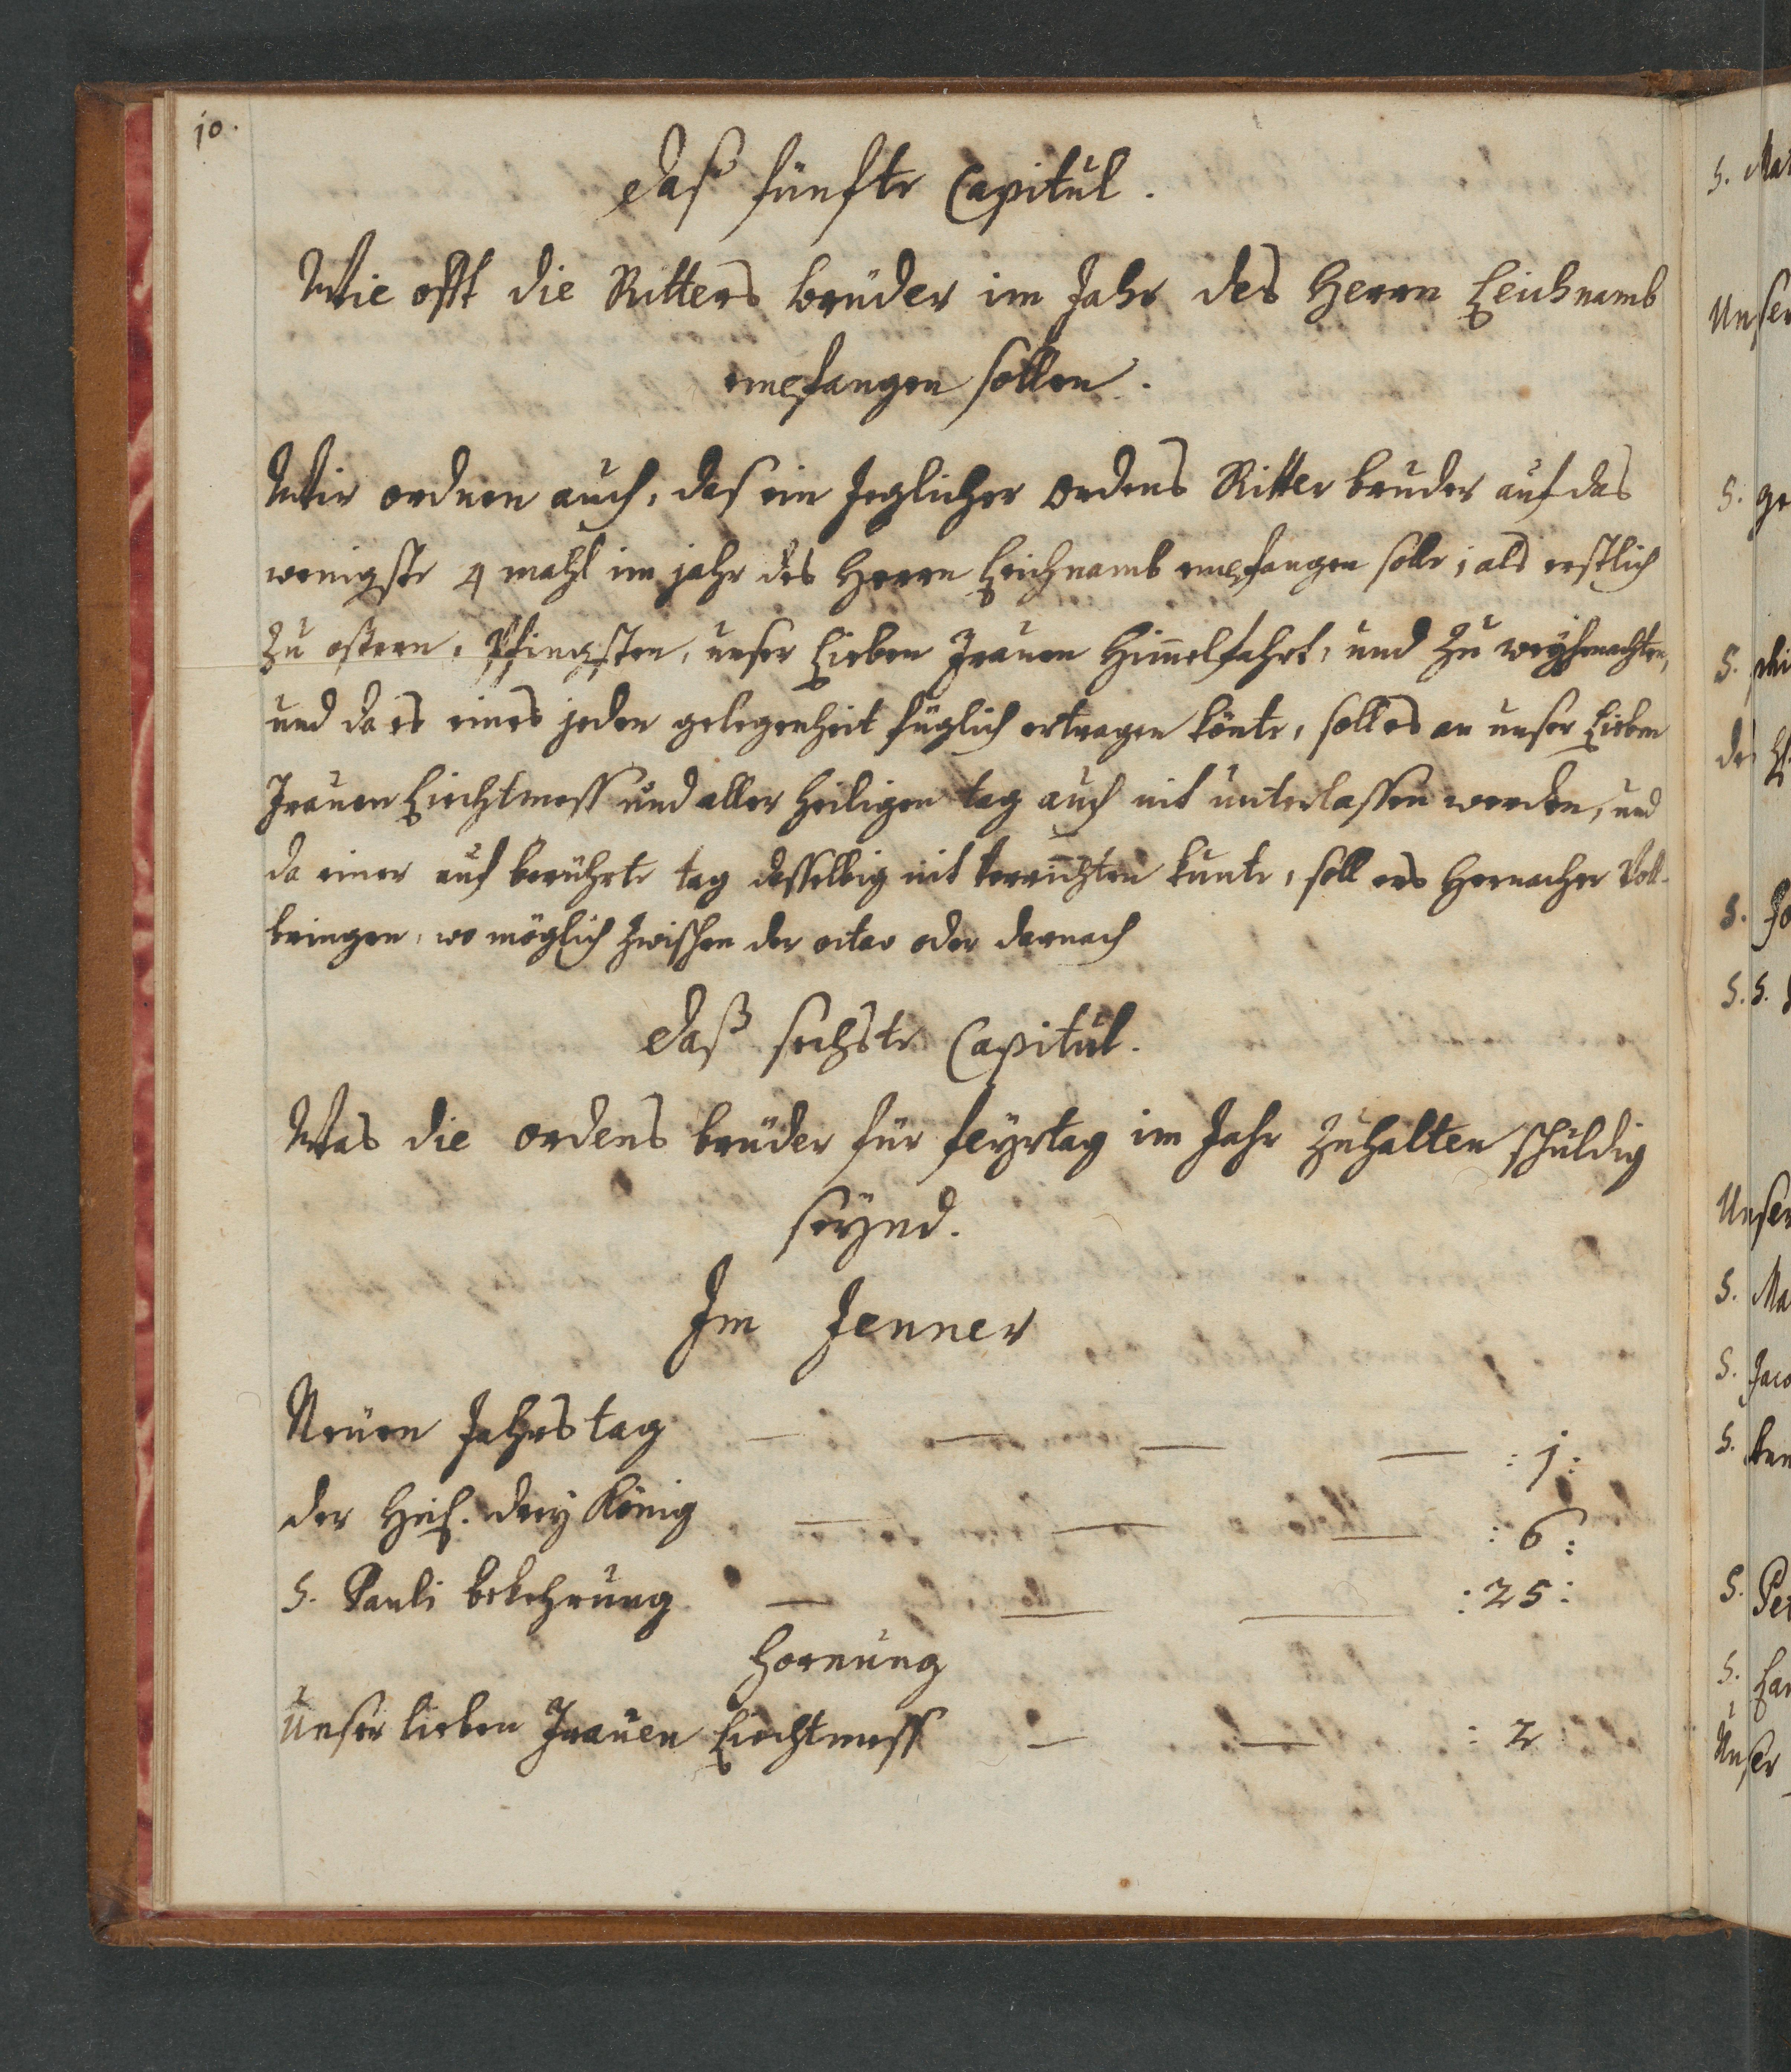 10.
daß fünfte Capitul.
Wie offt die Ritters brüder im Jahr des Herrn Leichnamb
empfangen sollen.
Wir ordnen auch, das ein Jeglicher ordens Ritter bruder auf das
wenigste 4 mahl im jahr des Herrn Leichnamb empfangen solle; als erstlich
zu ostern, Pfingsten, unser Lieben Frauen Himelfahrt, und zu weyhenachten,
und da es eines jeden gelegenheit füglich ertragen könte, soll es an unser Lieben
Frauen Liechtmess und aller Heiligen tag auch nit unterlassen werden, und
da einer auf berührte tag dasselbig nit verrichten kunte, soll ers Hernacher Voll-
bringen, wo möglich zwischen der octav oder darnach
daß sechste Capitul.
Was die ordens brüder für feyrtag im Jahr zuhalten schuldig
seynd.
Im Jenner
Neuen Jahrs tag — — — — : 1 :
der Heil. drey König — — — : 6 :
S. Pauli bekehrung — — — : 25 :
Hornung
Unser lieben Frauen Liechtmess — — : 2
S.
Unser
S.
S.
S.
S. S.
Unser
S.
S.
S.
S.
S.
Unser